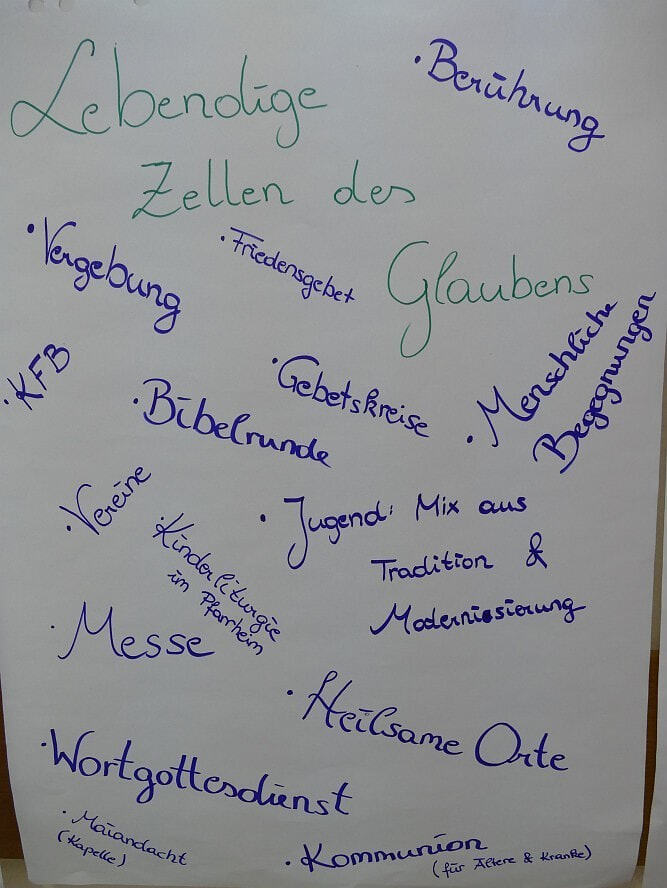 Lebendige
· Berührung
Zellen des
Glaubens
· Vergebung
· Friedensgebet
· KFB
· Gebetskreise
· Menschliche
Begegnungen
· Bibelrunde
· Vereine
· Kinderliturgie
im Pfarrheim
· Jugend: Mix aus
Tradition &
Modernissierung
· Messe
· Heilsame Orte
· Wortgottesdienst
· Maiandacht
(Kapelle)
· Kommunion
(für Ältere & Kranke)